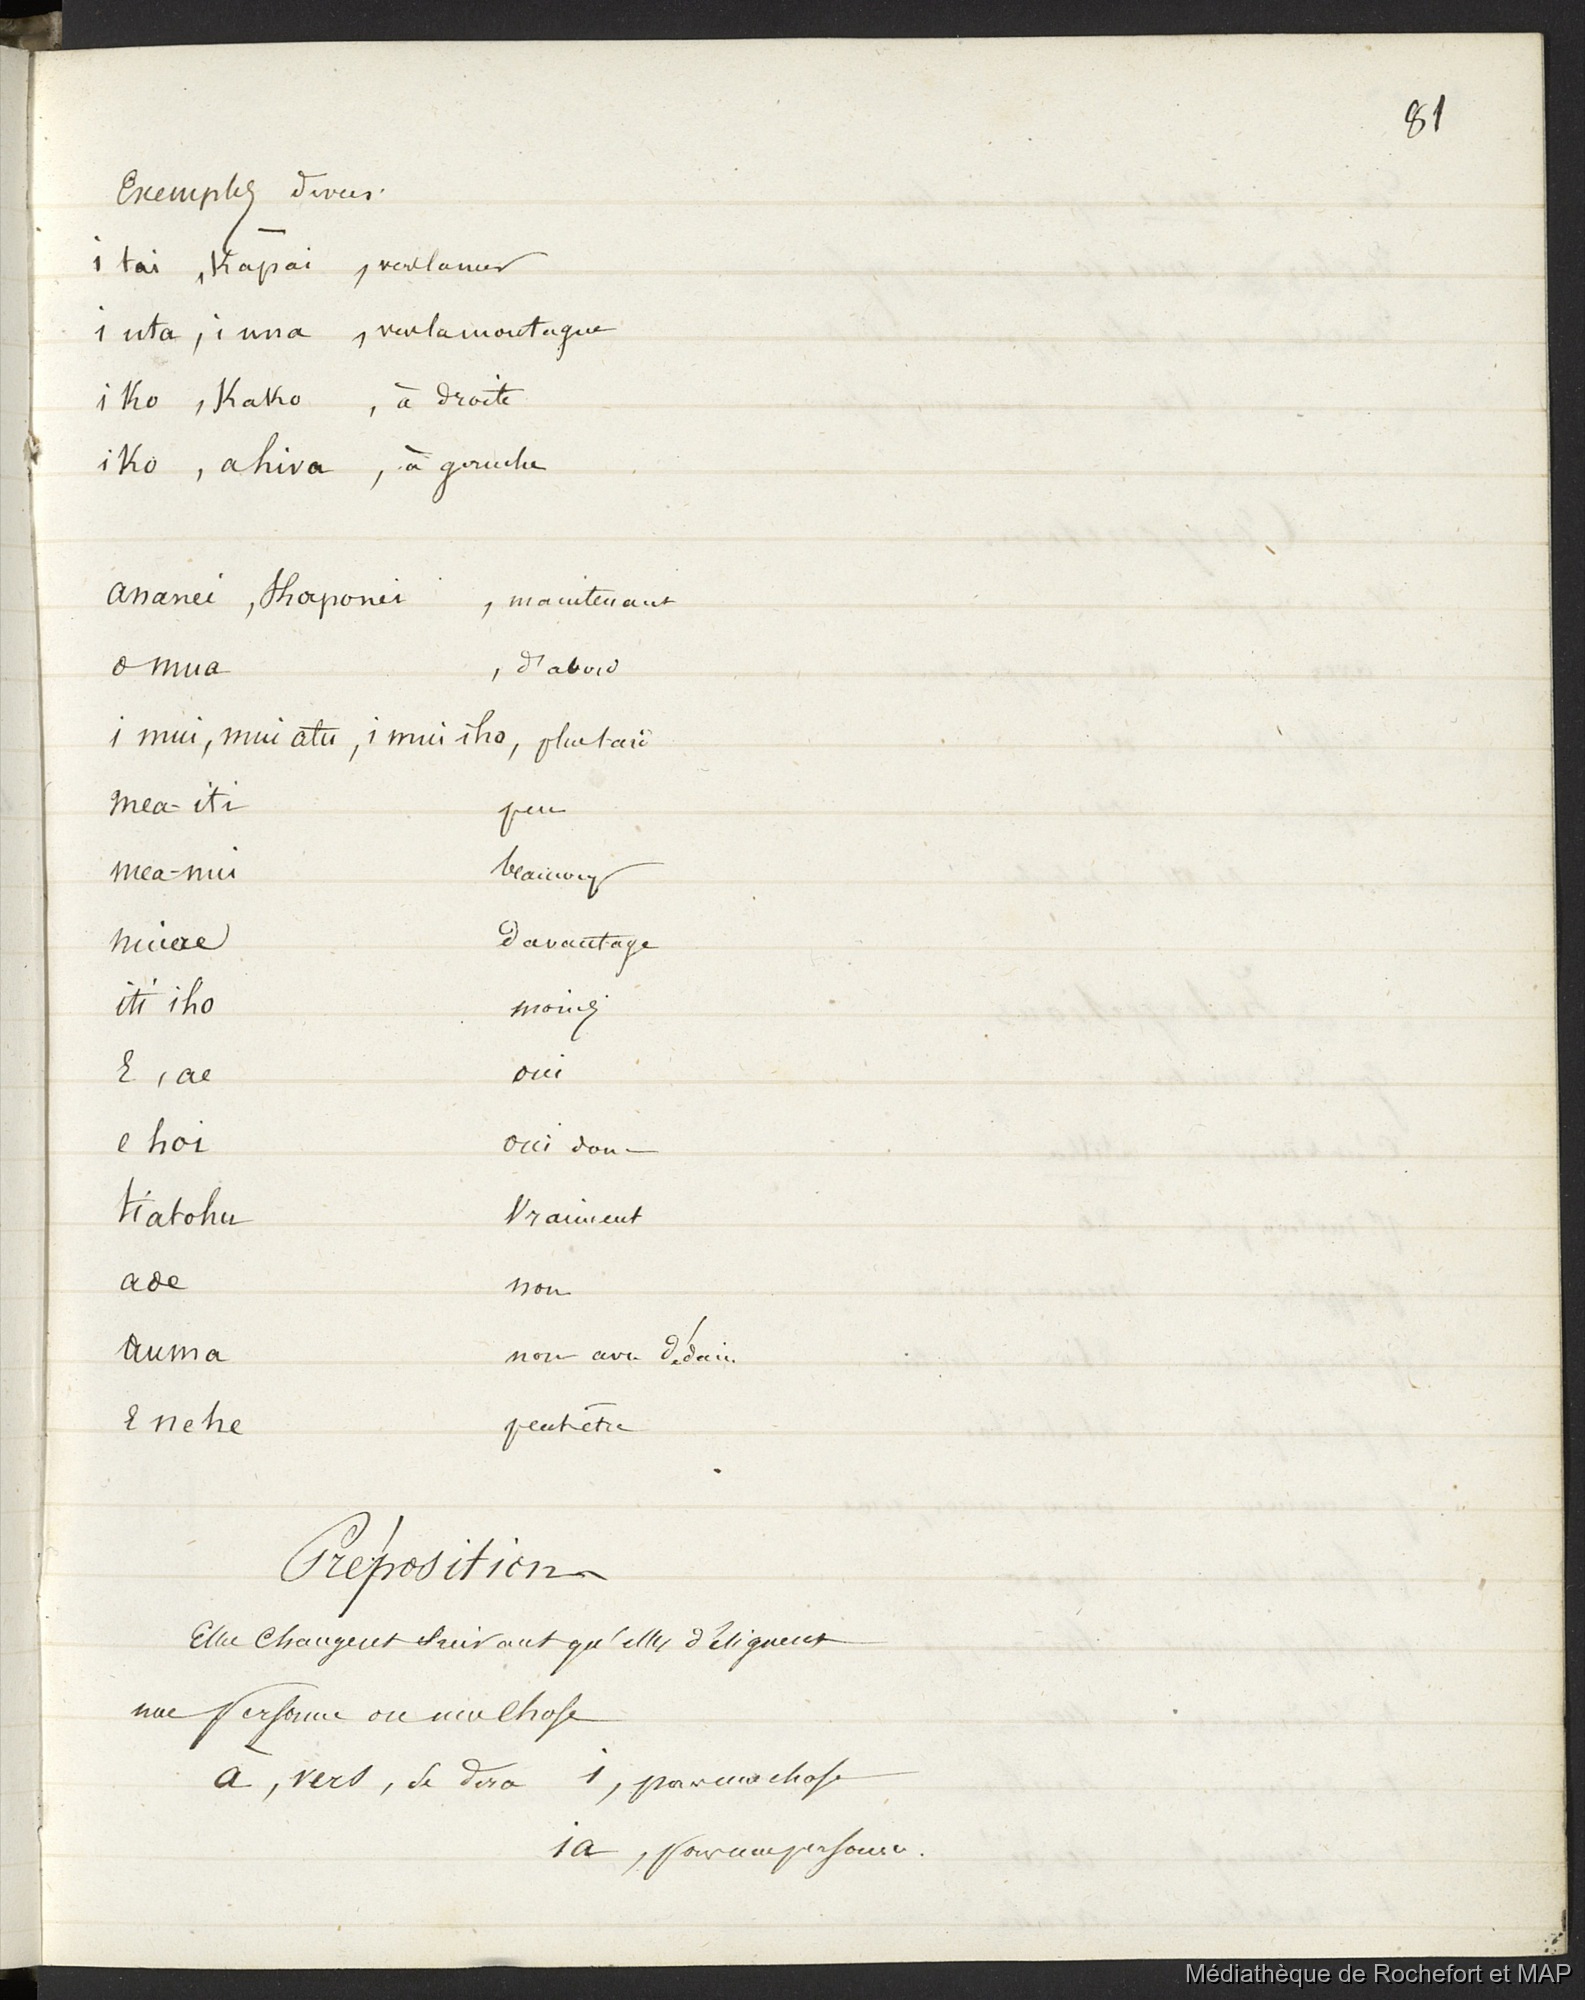 81
Exemples divers.
i tai , Kapai , vers la mer
i uta , i una , vers la montagne
i Ko , Kako , à droite
i Ko , ahiva , à gauche
ananei , Thaponei , maintenant
o mua , d'abord
i mui, mui atu, i mui iho, plus tard
mea-iti peu
mea-nui beaucoup
nuiae davantage
iti iho moins
E , ae oui
e hoi oui donc
tiatohu Vraiment
aoe non
auma non avec dédain
E nehe peut être
Préposition
Elles changent suivant qu'elles désignent
une personne ou une chose
à , vers , se dira i , pour une chose
ia , pour une personne.
Médiathèque de Rochefort et MAP